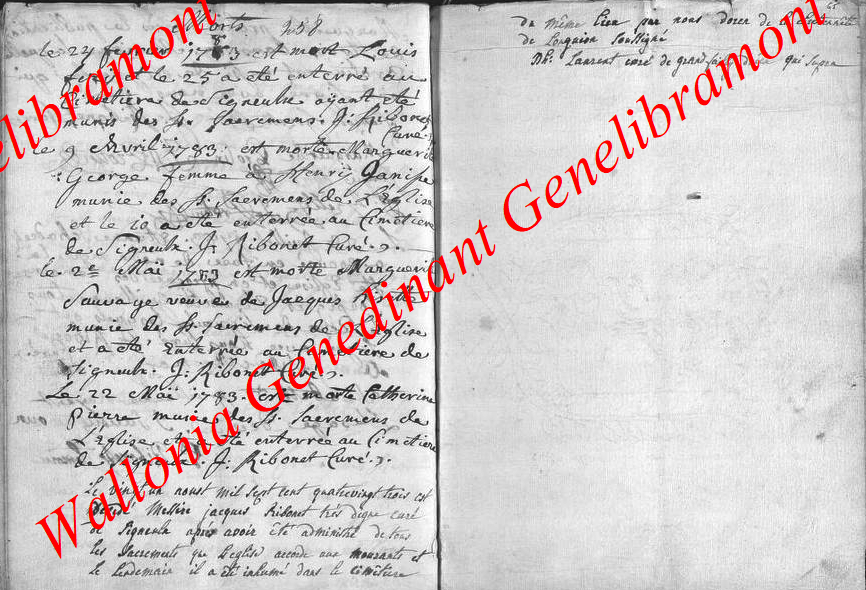 Morts 258
le 24 fevrier 1783 est mort Louis
et le 25 a été enterré au
Cimetiere de Signeulx ayant été
munis des SS. Sacremens. J: Ribonet
Curé.
le 9 Avril 1783. est morte Marguerite
George femme a Henri
munie des SS. Sacremens de L'Eglise
et le 10 a été enterrée au Cimetiere
de Signeulx. J: Ribonet Curé.
le 2e Mai 1783 est morte Marguerite
Sauvage veuve de Jacques
munie des SS. Sacremens de L'Eglise
et a été enterrée au Cimetiere de
Signeulx. J: Ribonet Curé.
Le 22 Mai 1783. est morte Catherine
Pierre munie des SS. Sacremens de
L'Eglise et a été enterrée au Cimetiere
de Signeulx. J: Ribonet Curé.
Le vingt un aoust mil sept cent quatrevingt trois est
décédé Messire jacques Ribonet très digne curé
de Signeulx après avoir été administré de tous
les Sacrements que L'eglise accorde aux mourants et
le lendemain il a été inhumé dans le cimetiere
du même lieu par nous doyen de
de Longuion Soussigné
Laurent curé de qui Supra
Wallonia Genedinant Genelibramont